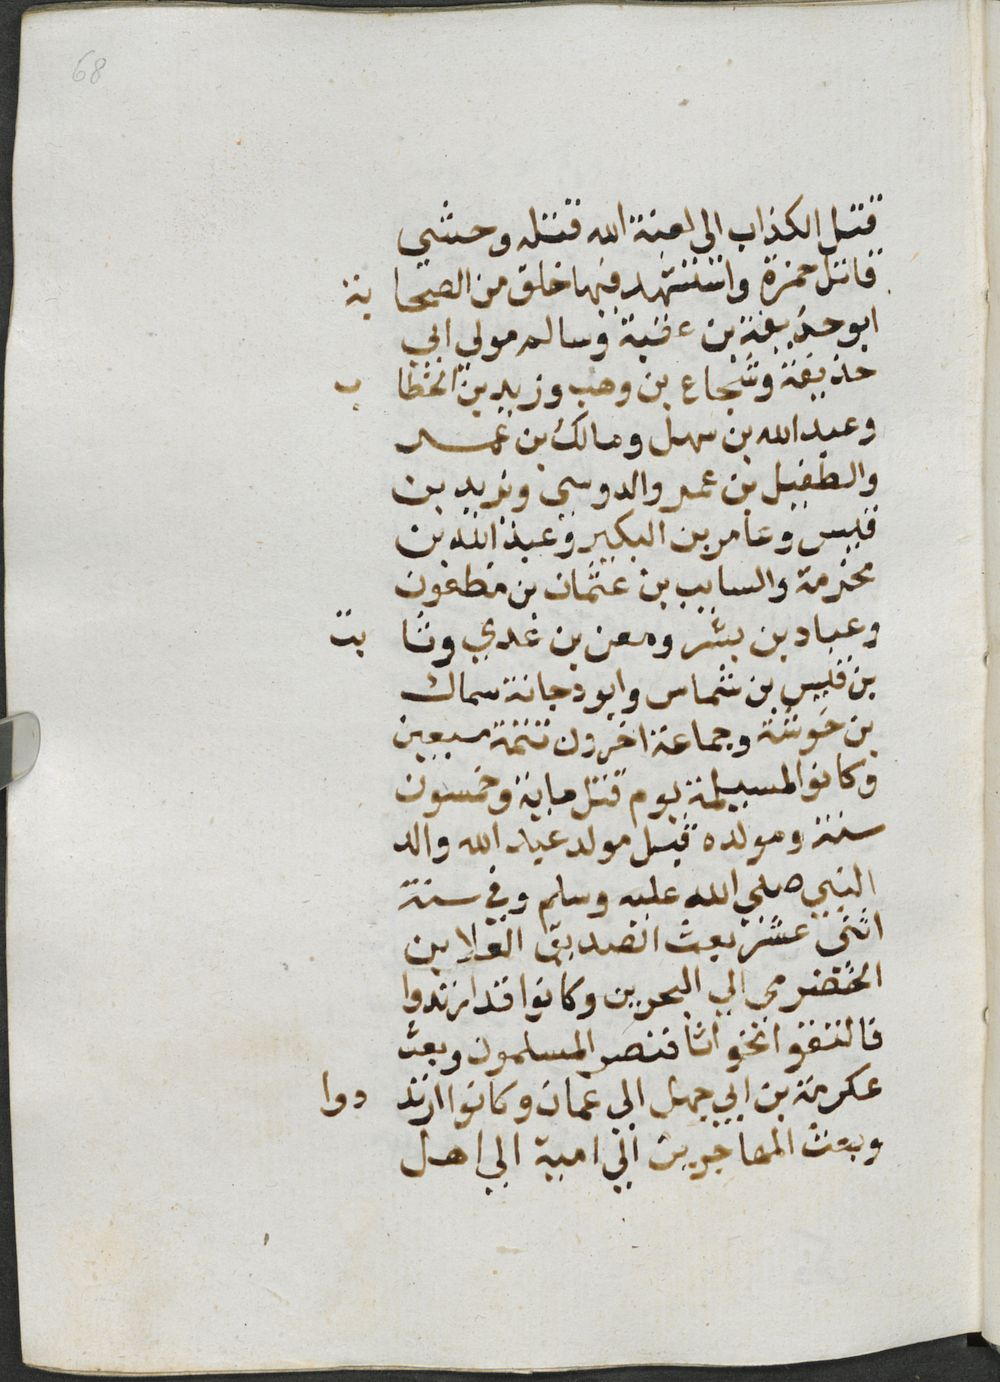 68
قتل الكذاب الى لعنة الله قتله وحشي
قاتل حمزة واستشهد فيها خلق من الصحابة
ابو حذيفة بن عتبة وسالم مولي ابي
حذيفة وشجاع بن وهب وزيد بن الخطاب
وعبد الله بن سهل ومالك بن عمر
والطفيل بن عمر والدوسي ويزيد بن
قيس وعامر بن البكير وعبد الله بن
مخرمة والسايب بن عثمان بن مظعون
وعباد بن بشر ومعن بن عدي وثابت
بن قيس بن شماس وابو دجانة سماك
بن خوشة وجماعة اخرون تتمة سبعين
وكانو المسيلمة يوم قتل ماية وخمسون
سنة ومولده قبل مولد عبد الله والد
النبي صلى الله عليه وسلم وفي سنة
اثنى عشر بعث الصديق العلا بن
الحضرمى الي البحرين وكانوا قد ارتدوا
فالتقوا نحو اثا فنصر المسلمون وبعث
عكرمة بن ابي جهل الي عمان وكانوا ارتدوا
وبعث المهاجرين ابي امية الي اهل